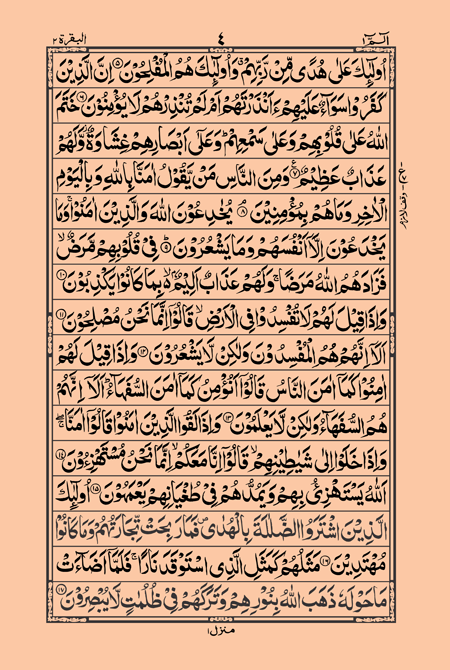 الٓمّٓ ١ ٤ البقرة ٢
اُولٰٓئِكَ عَلٰى هُدًى مِّنْ رَّبِّهِمْ وَاُولٰٓئِكَ هُمُ الْمُفْلِحُوْنَ ۵ اِنَّ الَّذِيْنَ
كَفَرُوْا سَوَآءٌ عَلَيْهِمْ ءَاَنْذَرْتَهُمْ اَمْ لَمْ تُنْذِرْهُمْ لَا يُؤْمِنُوْنَ ۶ خَتَمَ
اللّٰهُ عَلٰى قُلُوْبِهِمْ وَعَلٰى سَمْعِهِمْ وَعَلٰٓى اَبْصَارِهِمْ غِشَاوَةٌ وَّلَهُمْ
عَذَابٌ عَظِيْمٌ ۷ وَمِنَ النَّاسِ مَنْ يَّقُوْلُ اٰمَنَّا بِاللّٰهِ وَبِالْيَوْمِ
الْاٰخِرِ وَمَا هُمْ بِمُؤْمِنِيْنَ ۸ يُخٰدِعُوْنَ اللّٰهَ وَالَّذِيْنَ اٰمَنُوْا وَمَا
يَخْدَعُوْنَ اِلَّآ اَنْفُسَهُمْ وَمَا يَشْعُرُوْنَ ۹ فِيْ قُلُوْبِهِمْ مَّرَضٌ
فَزَادَهُمُ اللّٰهُ مَرَضًا وَلَهُمْ عَذَابٌ اَلِيْمٌ بِمَا كَانُوْا يَكْذِبُوْنَ ۱۰
وَاِذَا قِيْلَ لَهُمْ لَا تُفْسِدُوْا فِى الْاَرْضِ قَالُوْٓا اِنَّمَا نَحْنُ مُصْلِحُوْنَ ۱۱
اَلَآ اِنَّهُمْ هُمُ الْمُفْسِدُوْنَ وَلٰكِنْ لَّا يَشْعُرُوْنَ ۱۲ وَاِذَا قِيْلَ لَهُمْ
اٰمِنُوْا كَمَآ اٰمَنَ النَّاسُ قَالُوْٓا اَنُؤْمِنُ كَمَآ اٰمَنَ السُّفَهَآءُ اَلَآ اِنَّهُمْ
هُمُ السُّفَهَآءُ وَلٰكِنْ لَّا يَعْلَمُوْنَ ۱۳ وَاِذَا لَقُوا الَّذِيْنَ اٰمَنُوْا قَالُوْٓا اٰمَنَّا
وَاِذَا خَلَوْا اِلٰى شَيٰطِيْنِهِمْ قَالُوْٓا اِنَّا مَعَكُمْ اِنَّمَا نَحْنُ مُسْتَهْزِءُوْنَ ۱۴
اَللّٰهُ يَسْتَهْزِئُ بِهِمْ وَيَمُدُّهُمْ فِيْ طُغْيَانِهِمْ يَعْمَهُوْنَ ۱۵ اُولٰٓئِكَ
الَّذِيْنَ اشْتَرَوُا الضَّلٰلَةَ بِالْهُدٰى فَمَا رَبِحَتْ تِّجَارَتُهُمْ وَمَا كَانُوْا
مُهْتَدِيْنَ ۱۶ مَثَلُهُمْ كَمَثَلِ الَّذِى اسْتَوْقَدَ نَارًا فَلَمَّآ اَضَآءَتْ
مَا حَوْلَهٗ ذَهَبَ اللّٰهُ بِنُوْرِهِمْ وَتَرَكَهُمْ فِيْ ظُلُمٰتٍ لَّا يُبْصِرُوْنَ ۱۷
منزل ١